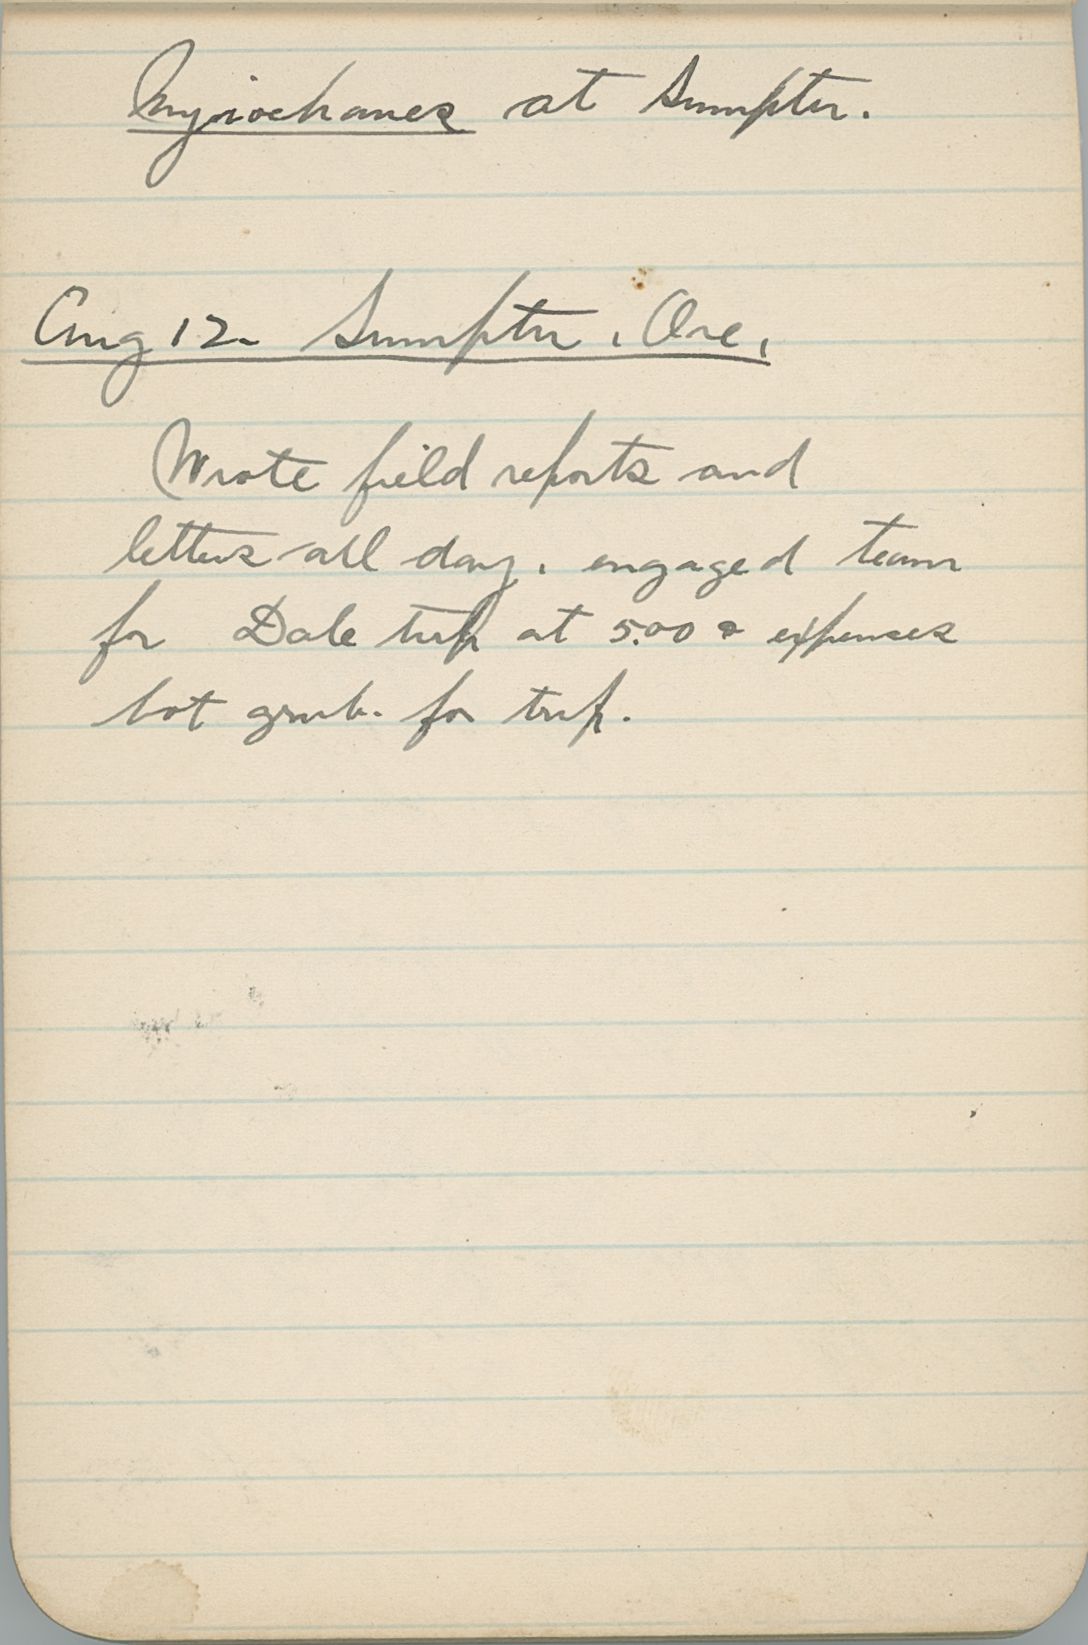 Myiochanes at Sumpter.
Aug 12. Sumpter, Ore,
Wrote field reports and
letters all day. engaged team
for Dale trip at 5.00 & expenses
bot grub. for trip.